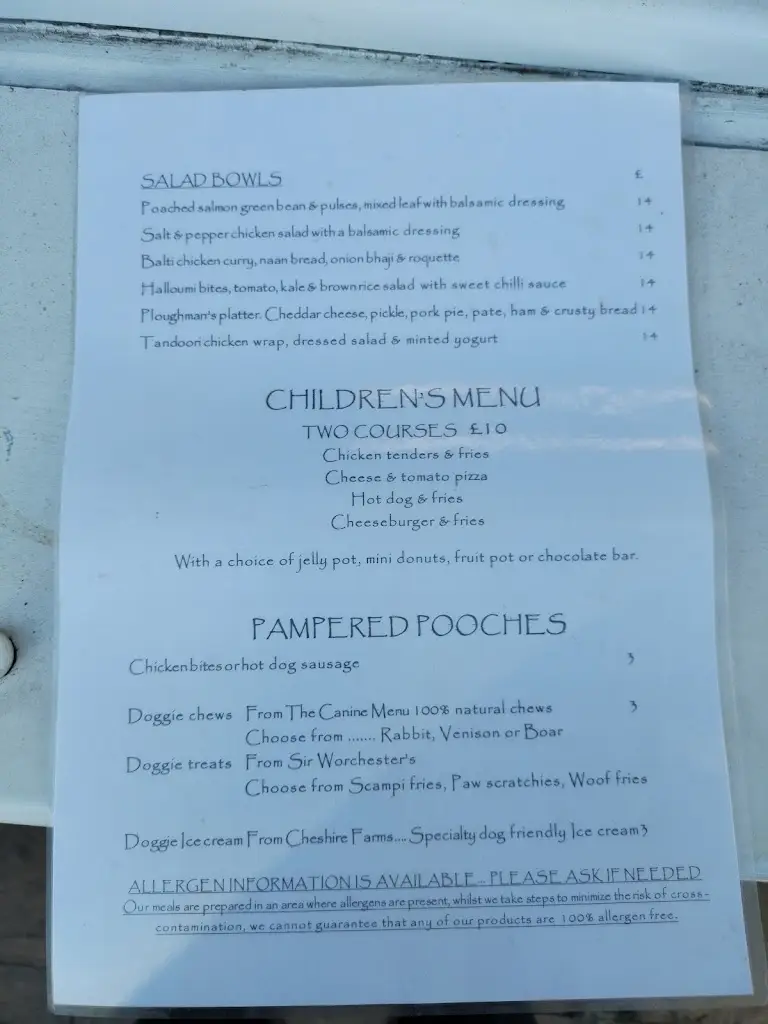 SALAD BOWLS £
Poached salmon green bean & pulses, mixed leaf with balsamic dressing 14
Salt & pepper chicken salad with a balsamic dressing 14
Balti chicken curry, naan bread, onion bhaji & roquette 14
Halloumi bites, tomato, kale & brown rice salad with sweet chilli sauce 14
Ploughman's platter. Cheddar cheese, pickle, pork pie, pate, ham & crusty bread 14
Tandoori chicken wrap, dressed salad & minted yogurt 14
CHILDREN'S MENU
TWO COURSES £10
Chicken tenders & fries
Cheese & tomato pizza
Hot dog & fries
Cheeseburger & fries
With a choice of jelly pot, mini donuts, fruit pot or chocolate bar.
PAMPERED POOCHES
Chicken bites or hot dog sausage 3
Doggie chews From The Canine Menu 100% natural chews 3
Choose from ....... Rabbit, Venison or Boar
Doggie treats From Sir Worchester's
Choose from Scampi fries, Paw scratchies, Woof fries
Doggie Ice cream From Cheshire Farms.... Specialty dog friendly Ice cream 3
ALLERGEN INFORMATION IS AVAILABLE – PLEASE ASK IF NEEDED
Our meals are prepared in an area where allergens are present, whilst we take steps to minimize the risk of cross-
contamination, we cannot guarantee that any of our products are 100% allergen free.